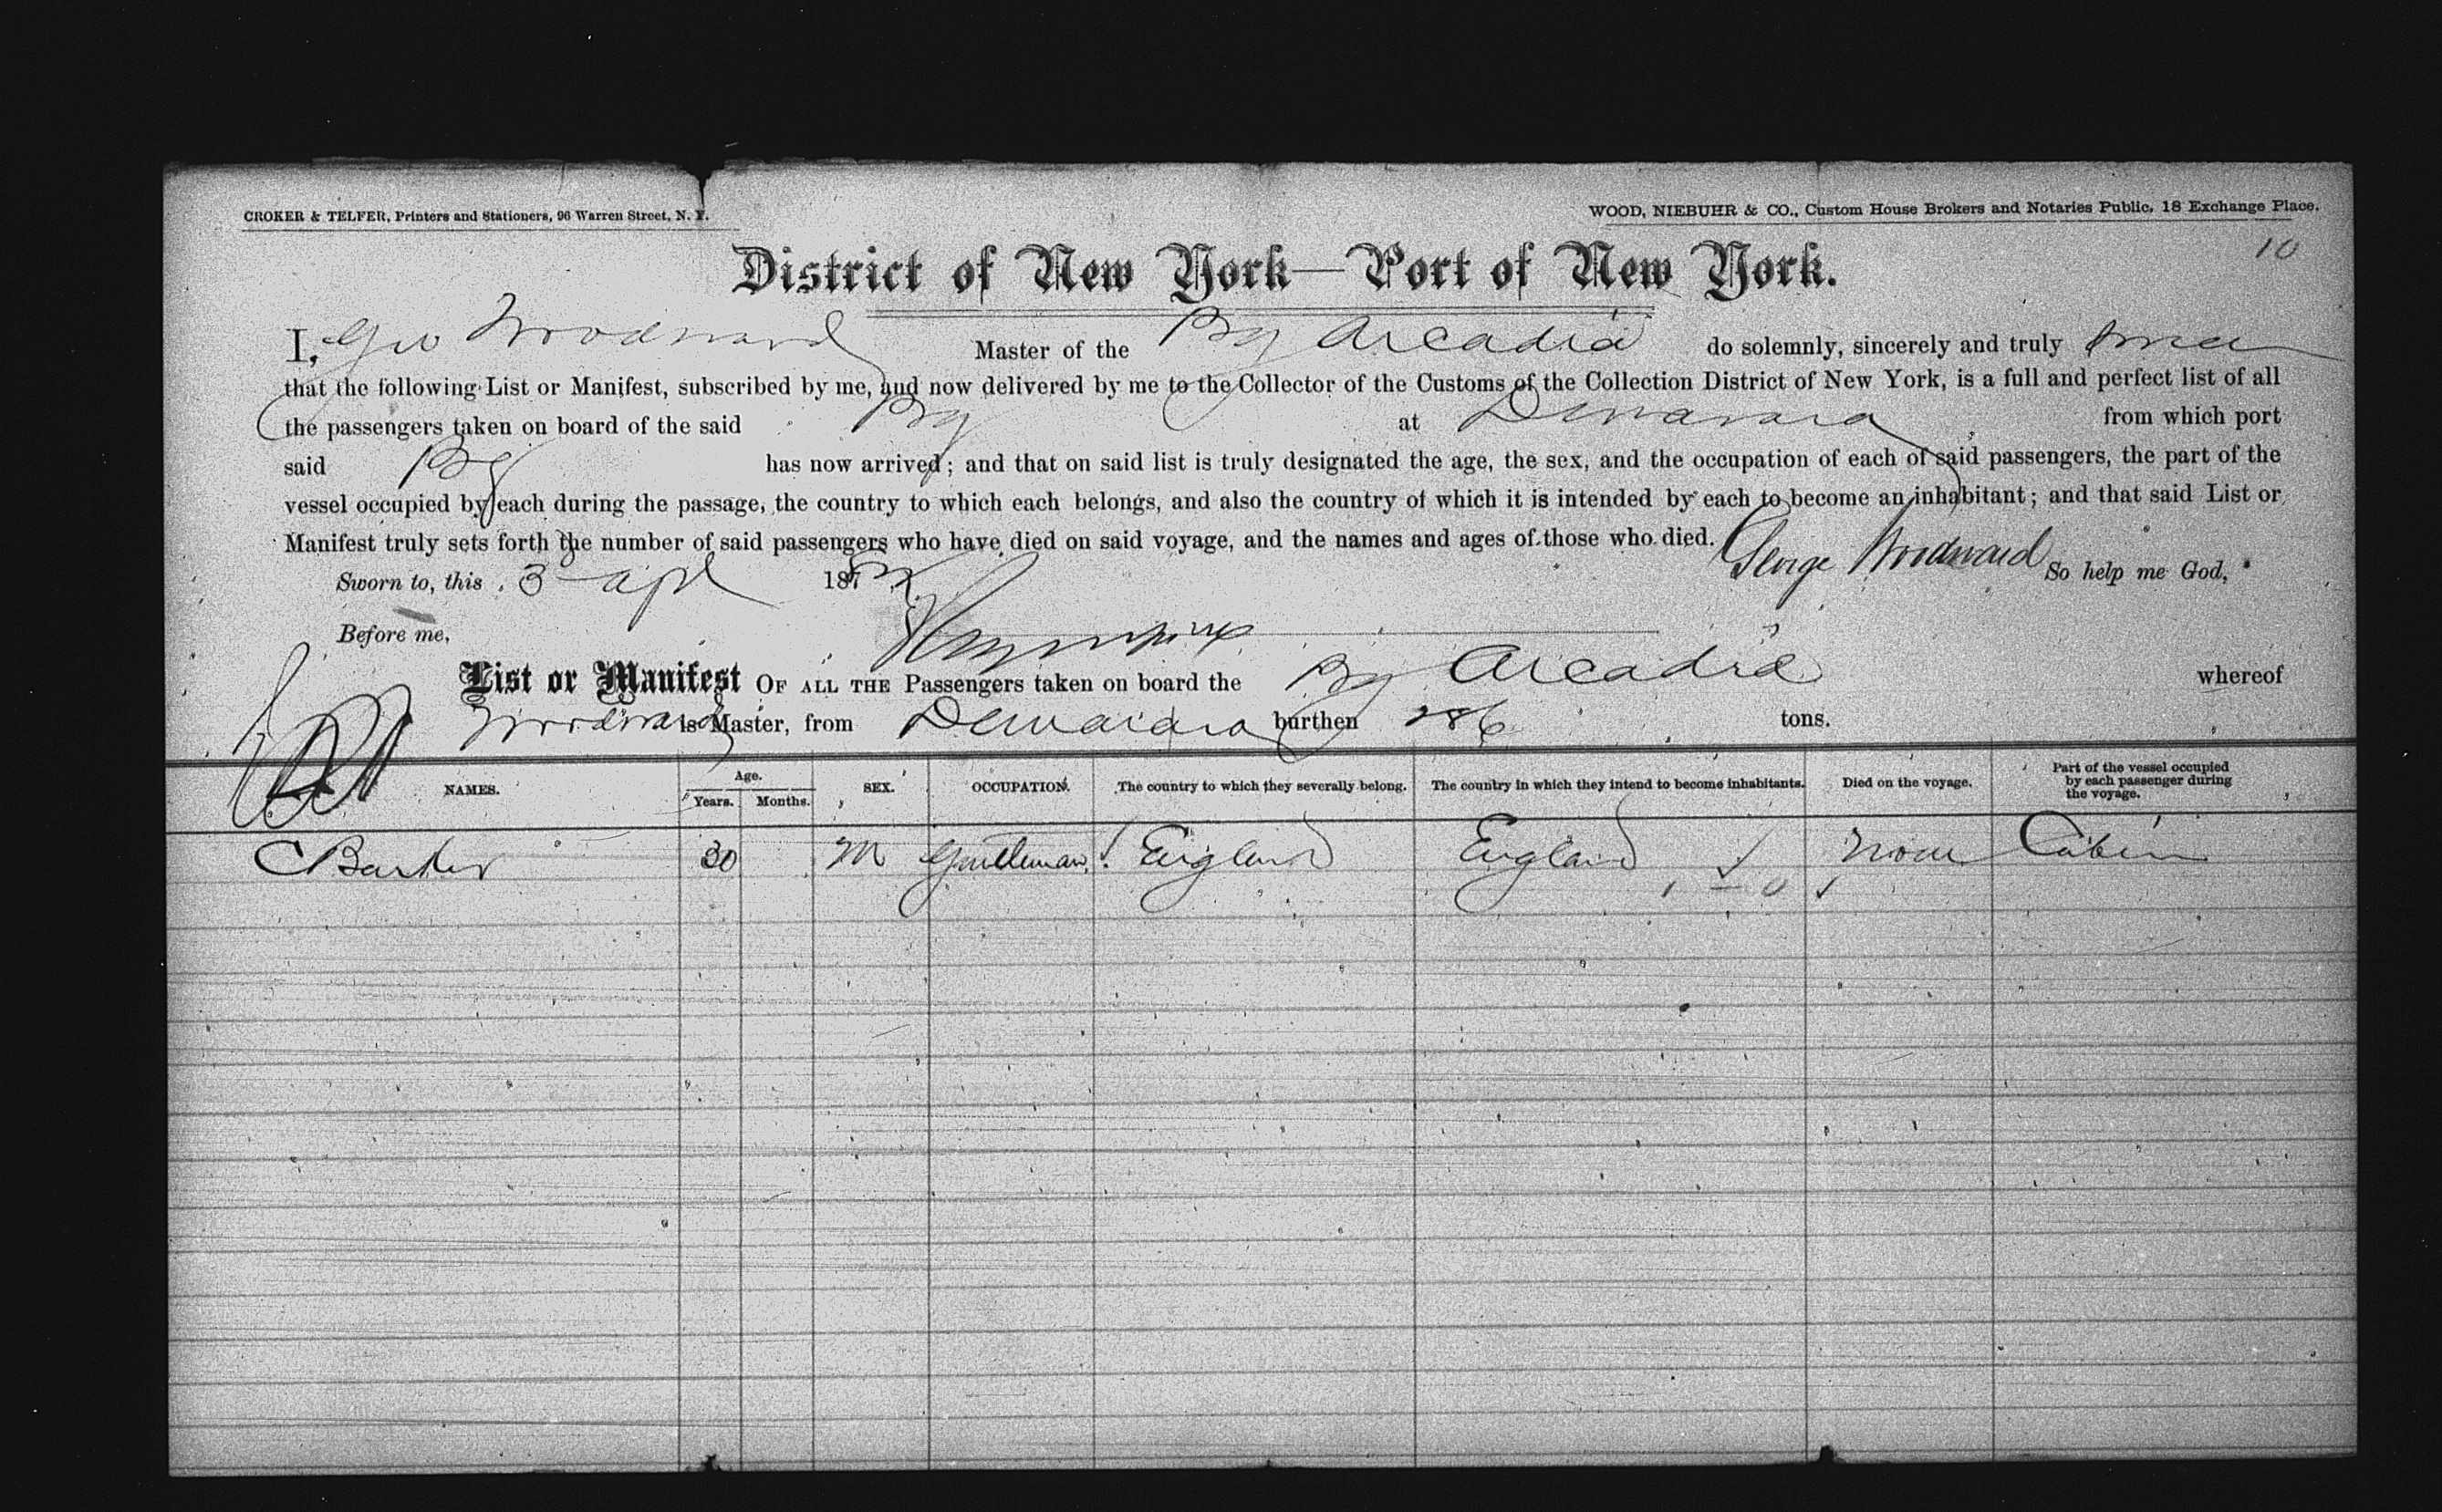 CROKER & TELFER, Printers and Stationers, 96 Warren Street, N. Y.
WOOD, NIEBUHR & CO., Custom House Brokers and Notaries Public, 18 Exchange Place.
10
District of New York—Port of New York.
I, Geo Woodward Master of the Bg Arcadia do solemnly, sincerely and truly swear
that the following List or Manifest, subscribed by me, and now delivered by me to the Collector of the Customs of the Collection District of New York, is a full and perfect list of all
the passengers taken on board of the said Bg at Demarara from which port
said Bg has now arrived; and that on said list is truly designated the age, the sex, and the occupation of each of said passengers, the part of the
vessel occupied by each during the passage, the country to which each belongs, and also the country of which it is intended by each to become an inhabitant; and that said List or
Manifest truly sets forth the number of said passengers who have died on said voyage, and the names and ages of those who died.
George Woodward So help me God,
Sworn to, this 3 apl 187
Before me,
List or Manifest OF ALL THE Passengers taken on board the Bg Arcadia whereof
Woodward is Master, from Demarara burthen 286 tons.
NAMES. Age. Years. Months. SEX. OCCUPATION. The country to which they severally belong. The country in which they intend to become inhabitants. Died on the voyage. Part of the vessel occupied by each passenger during the voyage.
C Barker 30 M Gentleman England England None Cabin